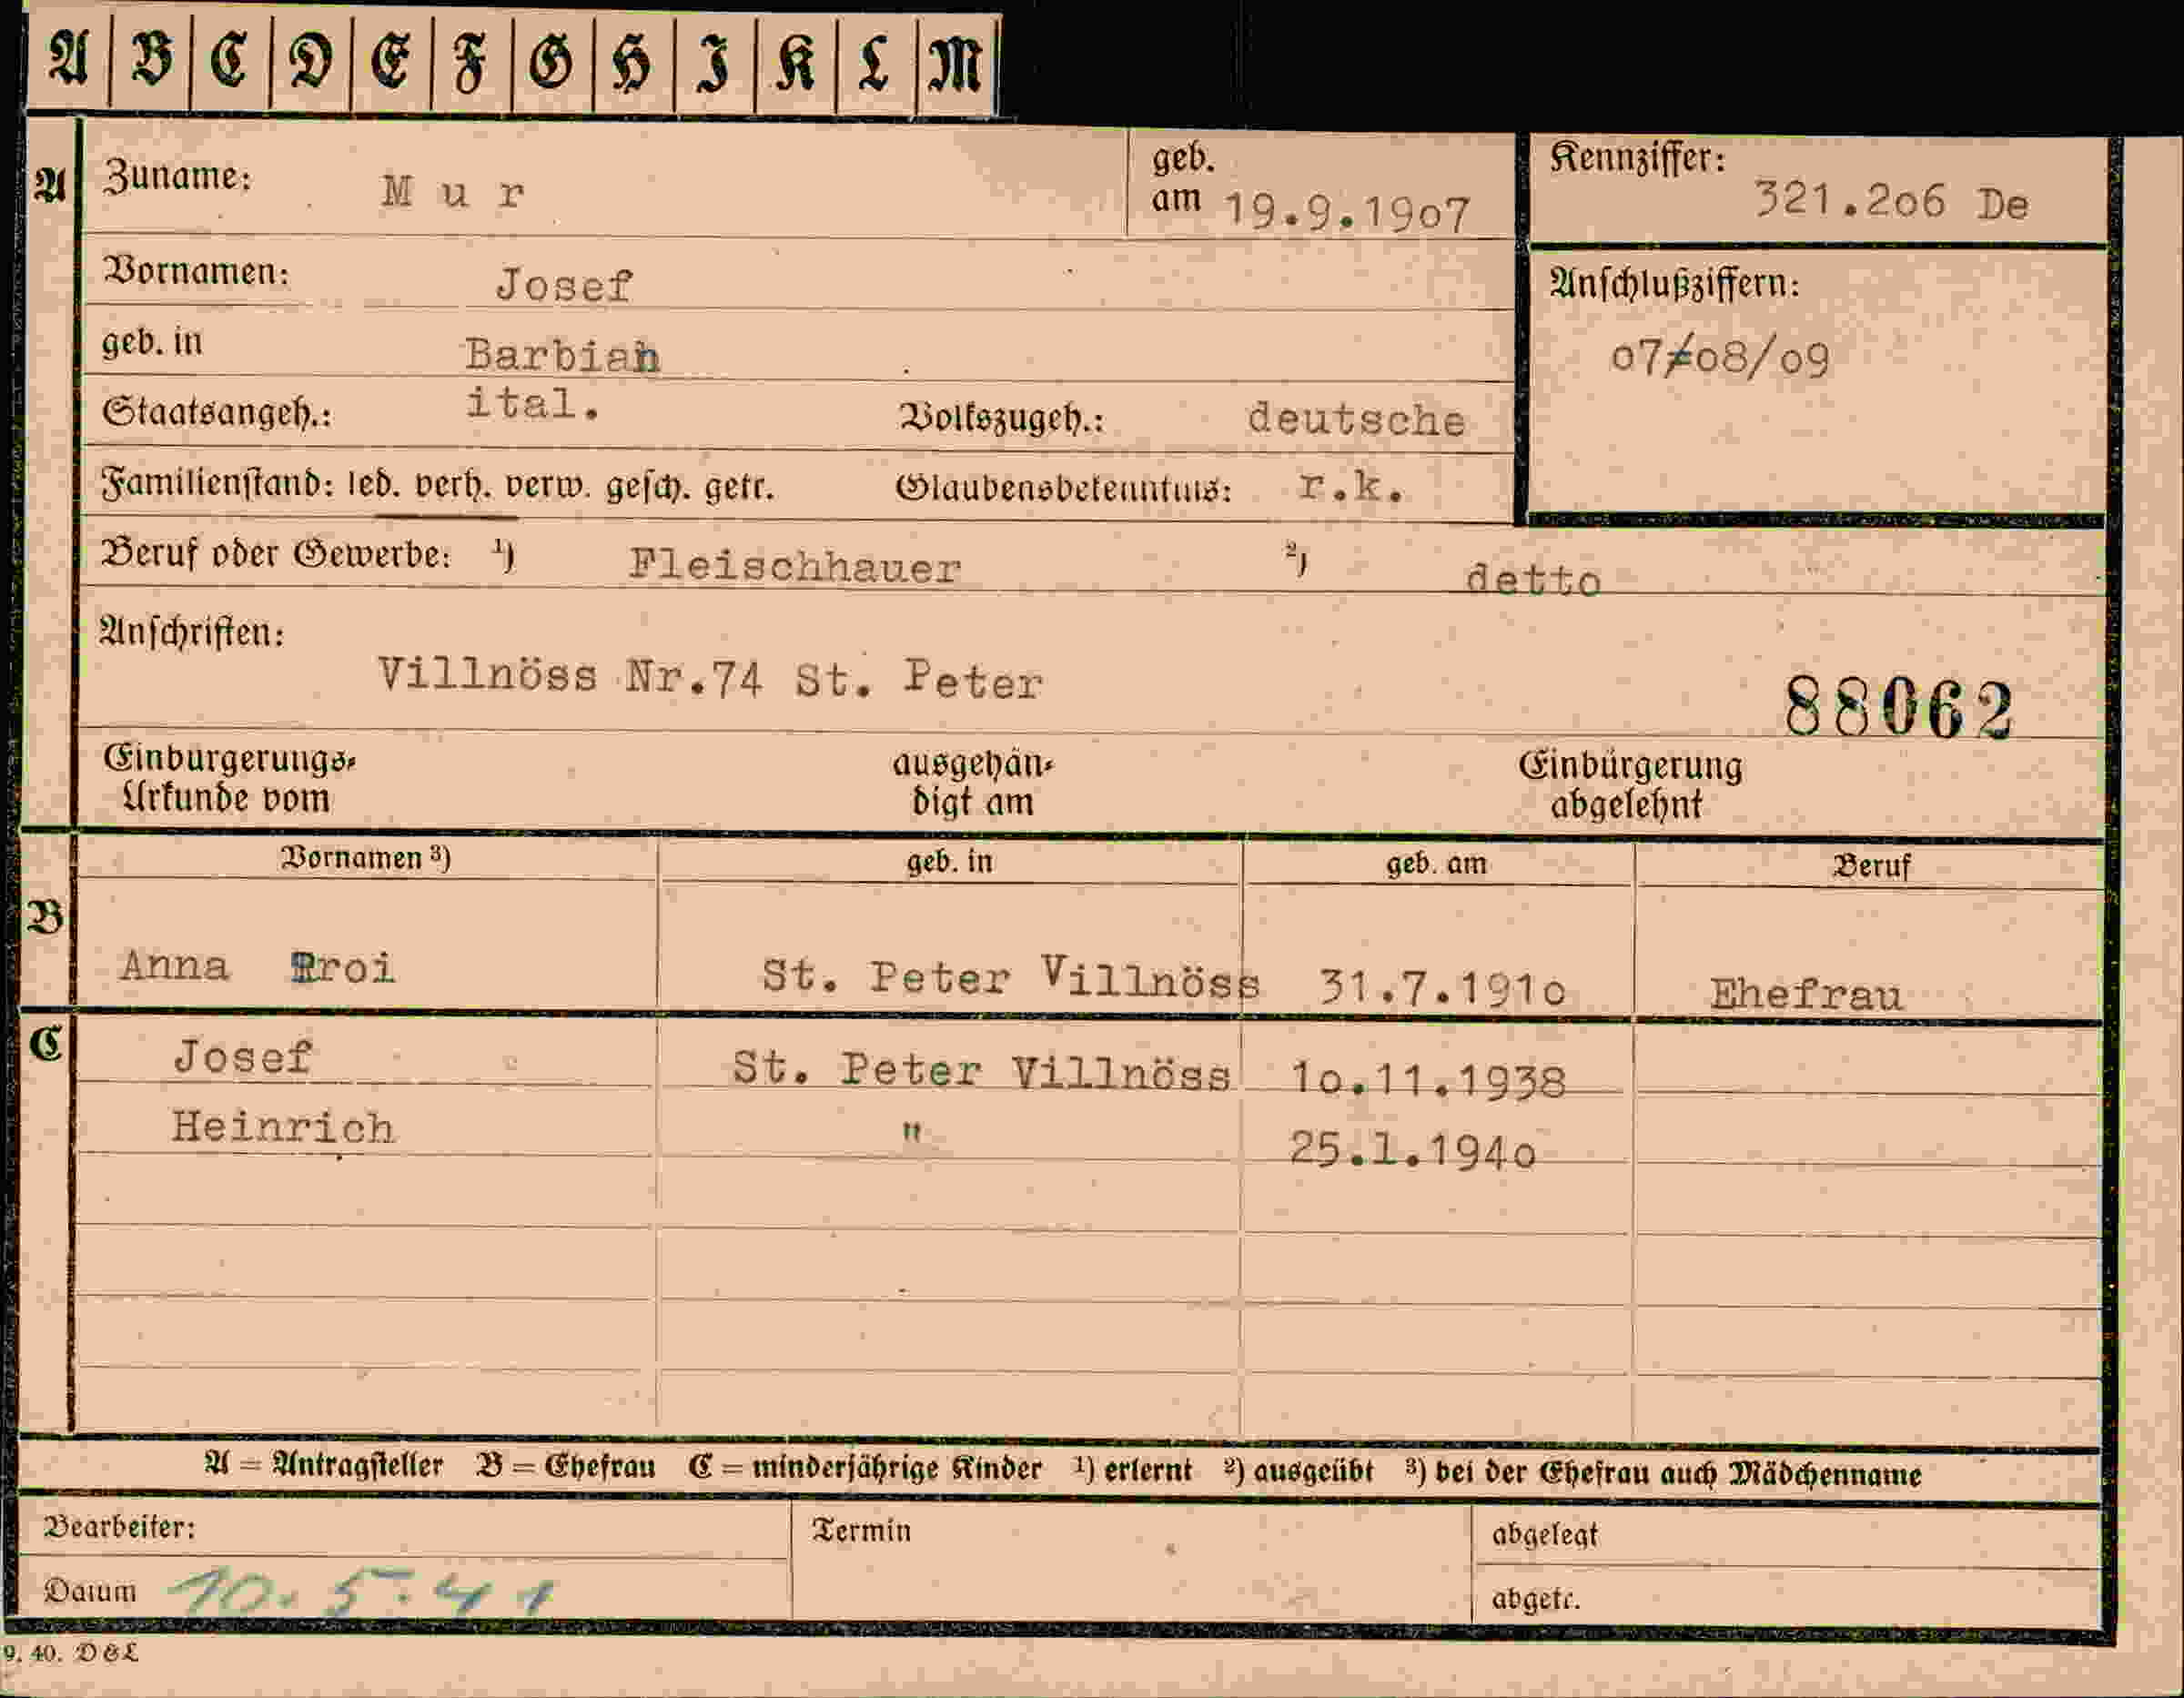 A B C D E F G H I K L M
A Zuname: Mur geb. am 19.9.1907 Kennziffer: 321.206 De
Vornamen: Josef Anschlußziffern:
geb. in Barbian 07/08/09
Staatsangeh.: ital. Volkszugeh.: deutsche
Familienstand: led. verh. verw. gesch. getr. Glaubensbekenntnis: r.k.
Beruf oder Gewerbe: ¹) Fleischhauer ²) detto
Anschriften:
Villnöss Nr.74 St. Peter
88062
Einbürgerungs-Urkunde vom ausgehändigt am Einbürgerung abgelehnt
Vornamen ³) geb. in geb. am Beruf
B
Anna St. Peter Villnöss 31.7.1910 Ehefrau
C Josef St. Peter Villnöss 10.11.1938
Heinrich " 25.1.1940
A = Antragsteller B = Ehefrau C = minderjährige Kinder ¹) erlernt ²) ausgeübt ³) bei der Ehefrau auch Mädchenname
Bearbeiter: Termin abgelegt
Datum 10.5.41 abgetr.
9. 40. D&L